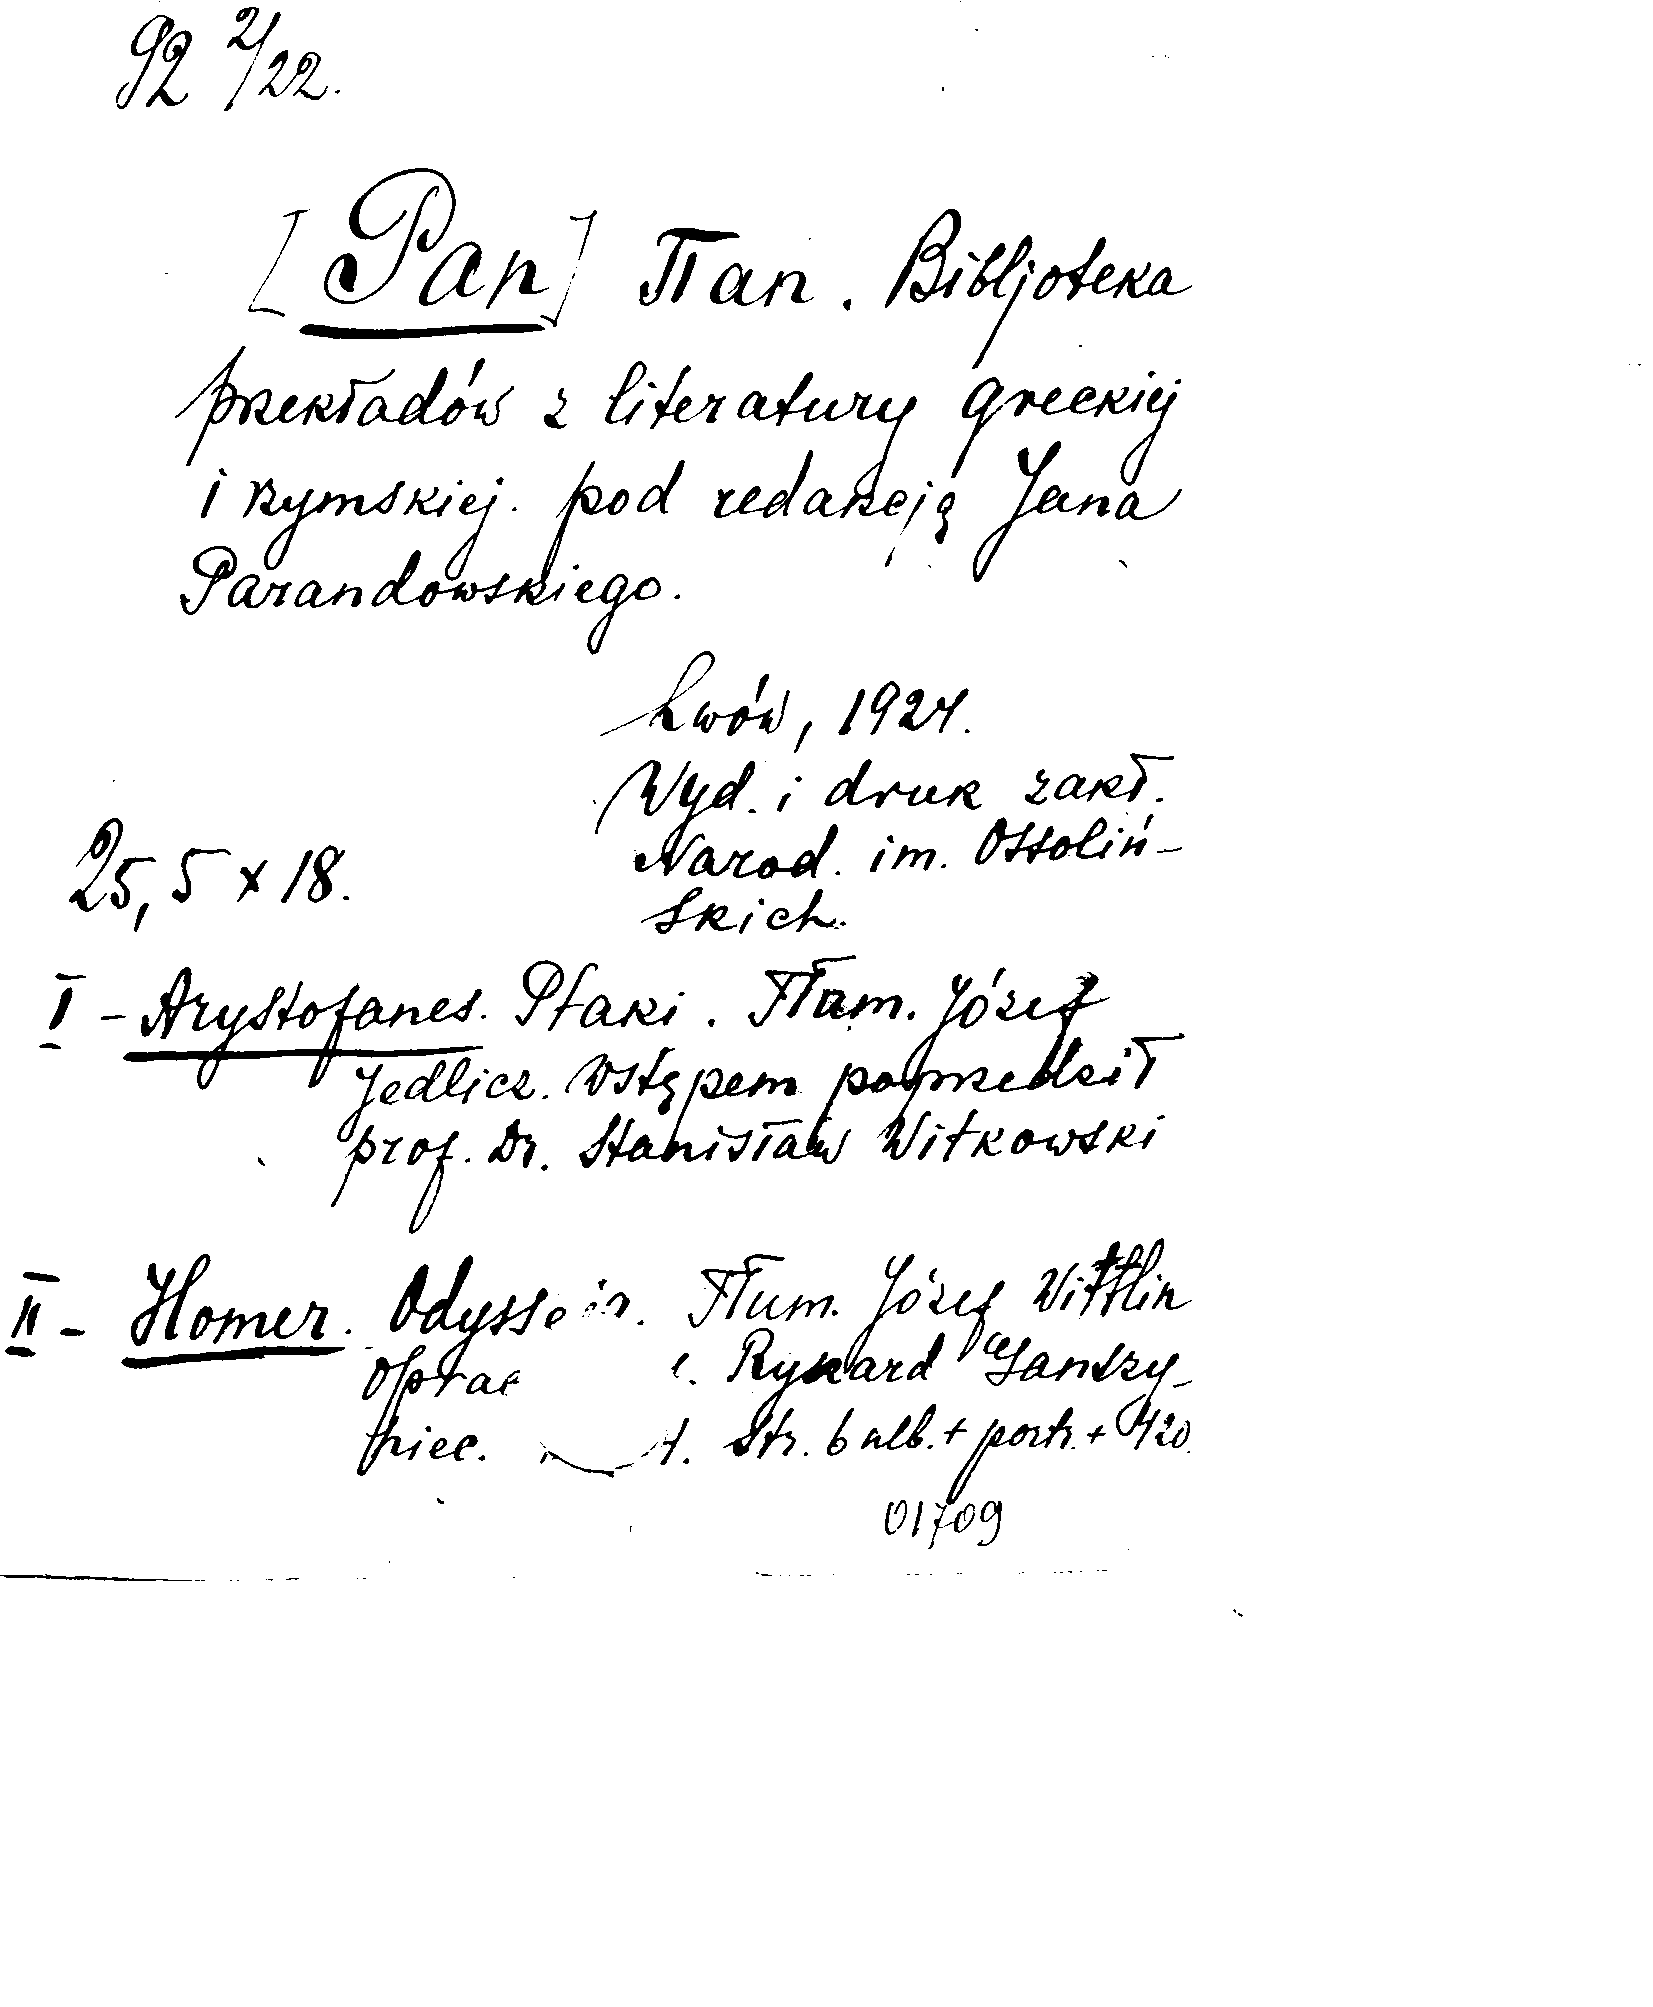 92 2/22.
[Pan] Παn. Bibljoteka
przekładów z literatury greckiej
i rzymskiej. pod redakcją Jana
Parandowskiego.
Lwów, 1924.
Wyd. i druk zakł.
Narod. im. Ossoliń-
skich.
25,5 x 18.
I - Arystofanes. Ptaki. Tłum. Józef
Jedlicz. Wstępem poprzedził
prof. Dr. Stanisław Witkowski
II - Homer. Odysseja. Tłum. Józef Wittlin
Oprac Ryszard Ganszy-
niec. Str. 6 nlb. + portr. + 420
01709